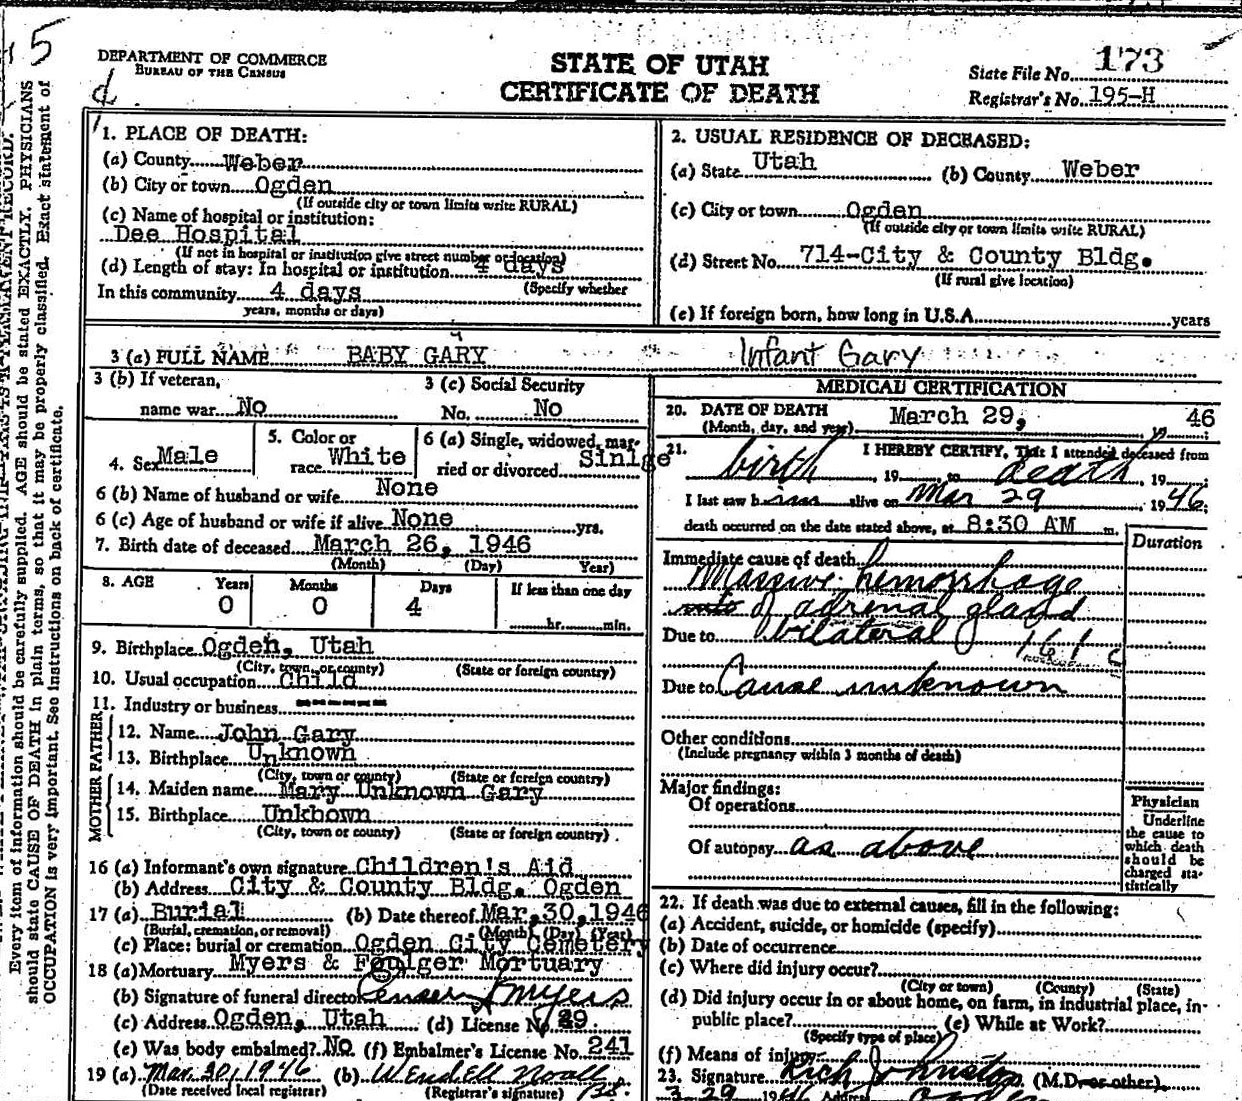 5
DEPARTMENT OF COMMERCE
BUREAU OF THE CENSUS
d.
STATE OF UTAH
CERTIFICATE OF DEATH
State File No. 173
Registrar's No. 195-H
Every item of information should be carefully supplied. AGE should be stated EXACTLY. PHYSICIANS
should state CAUSE OF DEATH in plain terms, so that it may be properly classified. Exact statement of
OCCUPATION is very important. See instructions on back of certificate.
1. PLACE OF DEATH:
(a) County Weber
(b) City or town Ogden
(If outside city or town limits write RURAL)
(c) Name of hospital or institution:
Dee Hospital
(If not in hospital or institution give street number or location)
(d) Length of stay: In hospital or institution 4 days
(Specify whether
In this community 4 days
years, months or days)
2. USUAL RESIDENCE OF DECEASED:
(a) State Utah (b) County Weber
(c) City or town Ogden
(If outside city or town limits write RURAL)
(d) Street No. 714-City & County Bldg.
(If rural give location)
(e) If foreign born, how long in U.S.A. years
3 (a) FULL NAME BABY GARY Infant Gary
3 (b) If veteran,
name war No
3 (c) Social Security
No. No
4. Sex Male
5. Color or
race White
6 (a) Single, widowed, mar-
ried or divorced Sinlge
6 (b) Name of husband or wife None
6 (c) Age of husband or wife if alive None yrs.
7. Birth date of deceased March 26, 1946
(Month) (Day) Year)
8. AGE Years Months Days If less than one day
0 0 4 hr. min.
9. Birthplace Ogden, Utah
(City, town, or county) (State or foreign country)
10. Usual occupation Child
11. Industry or business ------
FATHER
12. Name John Gary
13. Birthplace Unknown
(City, town or county) (State or foreign country)
MOTHER
14. Maiden name Mary Unknown Gary
15. Birthplace Unkhown
(City, town or county) (State or foreign country)
16 (a) Informant's own signature Children's Aid
(b) Address City & County Bldg. Ogden
17 (a) Burial (b) Date thereof Mar. 30, 1946
(Burial, cremation, or removal) (Month) (Day) (Year)
(c) Place: burial or cremation Ogden City Cemetery
18 (a) Mortuary Myers & Foulger Mortuary
(b) Signature of funeral director Myers
(c) Address Ogden, Utah (d) License No. 29
(e) Was body embalmed? No (f) Embalmer's License No. 241
19 (a) Mar. 30, 1946 (b) Wendell Noall
(Date received local registrar) (Registrar's signature)
MEDICAL CERTIFICATION
20. DATE OF DEATH
(Month, day, and year) March 29, 46
21. I HEREBY CERTIFY, That I attended deceased from
birth, 19 to death, 19 ;
I last saw him alive on Mar 29 1946;
death occurred on the date stated above, at 8:30 AM m.
Duration
Immediate cause of death
Massive hemorrhage
into of adrenal gland
Due to bilateral 161c
Due to Cause unknown
Other conditions
(Include pregnancy within 3 months of death)
Major findings:
Of operations
Of autopsy as above
Physician
Underline
the cause to
which death
should be
charged sta-
tistically
22. If death was due to external causes, fill in the following:
(a) Accident, suicide, or homicide (specify)
(b) Date of occurrence
(c) Where did injury occur?
(City or town) (County) (State)
(d) Did injury occur in or about home, on farm, in industrial place, in
public place? (e) While at Work?
(Specify type of place)
(f) Means of injury
23. Signature Rich Johnston (M.D. or other)
3 29 1946 Address